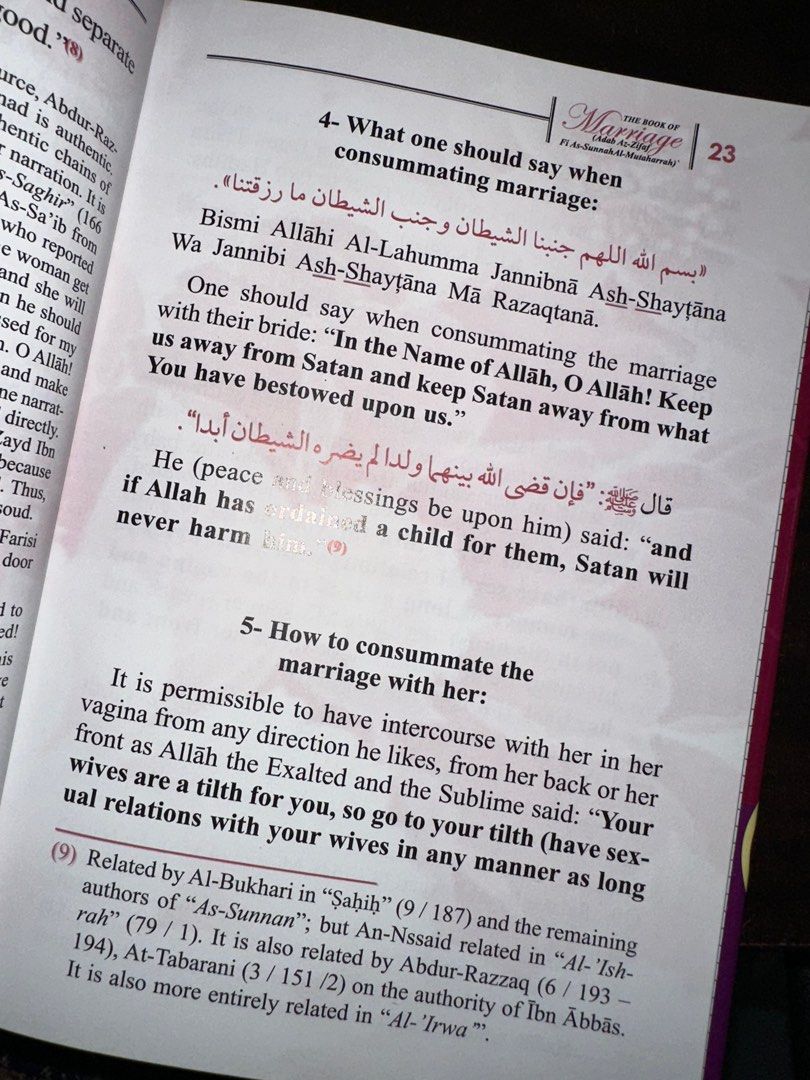 d separate
ood.’”(8)
urce, Abdur-Raz-
mad is authentic.
hentic chains of
r narration. It is
s-Saghir” (166
As-Sa’ib from
who reported
e woman get
and she will
n he should
ssed for my
n. O Allāh!
and make
ne narrat-
directly.
Zayd Ibn
because
. Thus,
soud.
Farisi
door
d to
ed!
his
e
t
THE BOOK OF
Marriage
(Adab Az-Zifaf
Fi As-SunnahAl-Mutaharrah)
23
4- What one should say when
consummating marriage:
«بسم الله اللهم جنبنا الشيطان وجنب الشيطان ما رزقتنا».
Bismi Allāhi Al-Lahumma Jannibnā Ash-Shayṭāna
Wa Jannibi Ash-Shayṭāna Mā Razaqtanā.
One should say when consummating the marriage
with their bride: “In the Name of Allāh, O Allāh! Keep
us away from Satan and keep Satan away from what
You have bestowed upon us.”
قال ﷺ: ”فإن قضى الله بينهما ولدا لم يضره الشيطان أبدا“.
He (peace and blessings be upon him) said: “and
if Allah has ordained a child for them, Satan will
never harm him.”(9)
5- How to consummate the
marriage with her:
It is permissible to have intercourse with her in her
vagina from any direction he likes, from her back or her
front as Allāh the Exalted and the Sublime said: “Your
wives are a tilth for you, so go to your tilth (have sex-
ual relations with your wives in any manner as long
(9) Related by Al-Bukhari in “Ṣaḥiḥ” (9 / 187) and the remaining
authors of “As-Sunnan”; but An-Nssaid related in “Al-’Ish-
rah” (79 / 1). It is also related by Abdur-Razzaq (6 / 193 –
194), At-Tabarani (3 / 151 /2) on the authority of Ībn Ābbās.
It is also more entirely related in “Al-’Irwa’”.